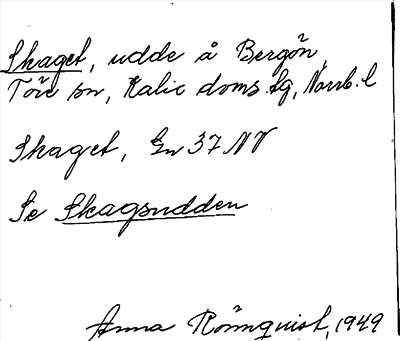 Skaget, udde å Bergön,
Töre sn, Kalix doms.sg, Norrb. l
Skaget, Gn 37 NV
Se Skagsudden
Anna Rönnquist, 1949